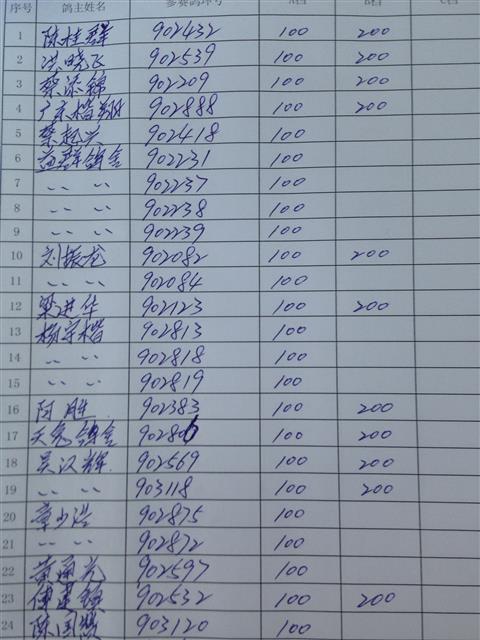 序号 鸽主姓名 参赛鸽环号 A档 B档 C档
1 陈桂群 902432 100 200
2 洪晓飞 902539 100 200
3 蔡添锦 902209 100 200
4 广东楷翔 902888 100 200
5 蔡起兴 902418 100
6 益群鸽舍 902231 100
7 〃 〃 902237 100
8 〃 〃 902238 100
9 〃 〃 902239 100
10 刘振龙 902082 100 200
11 〃 〃 902084 100
12 梁进华 902123 100 200
13 杨宇楷 902813 100
14 〃 〃 902818 100
15 〃 〃 902819 100
16 阿胜 902383 100 200
17 天兔鸽舍 902806 100 200
18 吴汉辉 902569 100 200
19 〃 〃 903118 100 200
20 章少浩 902875 100
21 〃 〃 902872 100
22 黄通光 902597 100
23 902532 100 200
24 陈国 903120 100